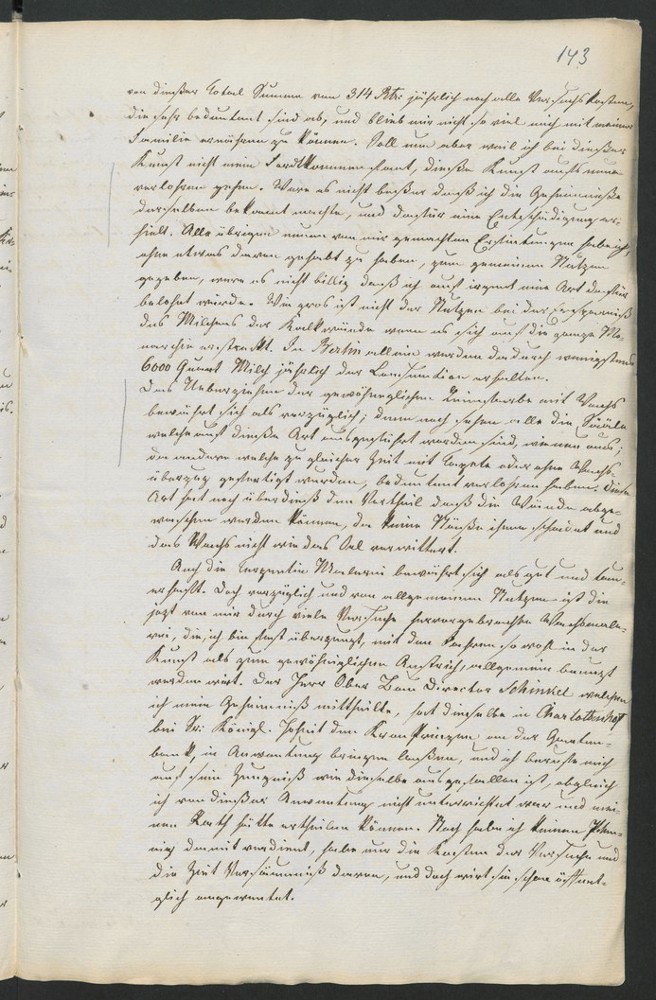 143
von dießer Total Summe von 314 Rtr: jährlich noch alle Versuchskosten,
die sehr bedeutent sind ab, und blieb mir nicht so viel mich mit meiner
Familie ernähren zu können. Soll nun aber weil ich bei dießer
Kunst nicht mein fand, dieße Kunst
verlohren gehen. Ware es nicht beßer daß ich die Geheimniße
derselben bekannt machte, und dafür eine Entschädigung er-
hielt. Alle übrigen neuen von mir gemachten Erfindungen habe ich,
ohne etwas davon gehabt zu haben, zum gemeinen Nutzen
gegeben, were es nicht billig daß ich auf irgent eine Art dafür
belohnt würde. Wie gros ist nicht der Nutzen bei der Ersparniß
des Milchens der Kalkwände wenn es sich auf die ganze Mo-
narchie erstreckt. In Berlin allein werden dadurch wenigstens
6000 Quart Milch jährlich der Consumtion erhalten.
Das Ueberziehen der gewöhnglichen Leimfarbe mit Wachs
bewährt sich als vorzüglich; denn noch sehen alle die Sääle
welche auf dieße Art ausgeführt worden sind, wie neu aus;
die andern welche zu gleicher Zeit mit Tapete oder ohne Wachs-
überzug gefertigt wurden, bedeutent verlohren haben. Diese
Art hat noch überdieß den Vortheil daß die Wände abge-
waschen werden können, da keine Näße ihnen schadet und
das Wachs nicht wie das Oel verwittert.
Auch die Terpentin Malerei bewährt sich als gut und
Doch vorzüglich und von allgemeinem Nutzen ist die
jezt von mir durch viele Versuche hervorgebrachte Wachsmale-
rei, die, ich bin fest überzeugt, mit den Jahren so wohl in der
Kunst als zum gewöhnglichen Anstrich, allgemein benuzt
werden wirt. Der Herr Ober Bau Director Schinkel welchem
ich mein Geheimniß mittheilte, hat dieselbe in Charlottenhof
bei Sr: Königl. Hoheit dem Kronprinzen an der Garten-
bank, in Anwentung bringen laßen, und ich berufe mich
auf sein Zeugniß wie dieselbe ausgefallen ist, obgleich
ich von dießer Anwentung nicht unterrichtet war und mei-
nen Rath hätte ertheilen können. Noch habe ich keinen Pfen-
nig damit verdient, habe nur die Kosten der Versuche und
die Zeit Versäumniß davon, und doch wirt sie schon öffent-
glich angewentet.